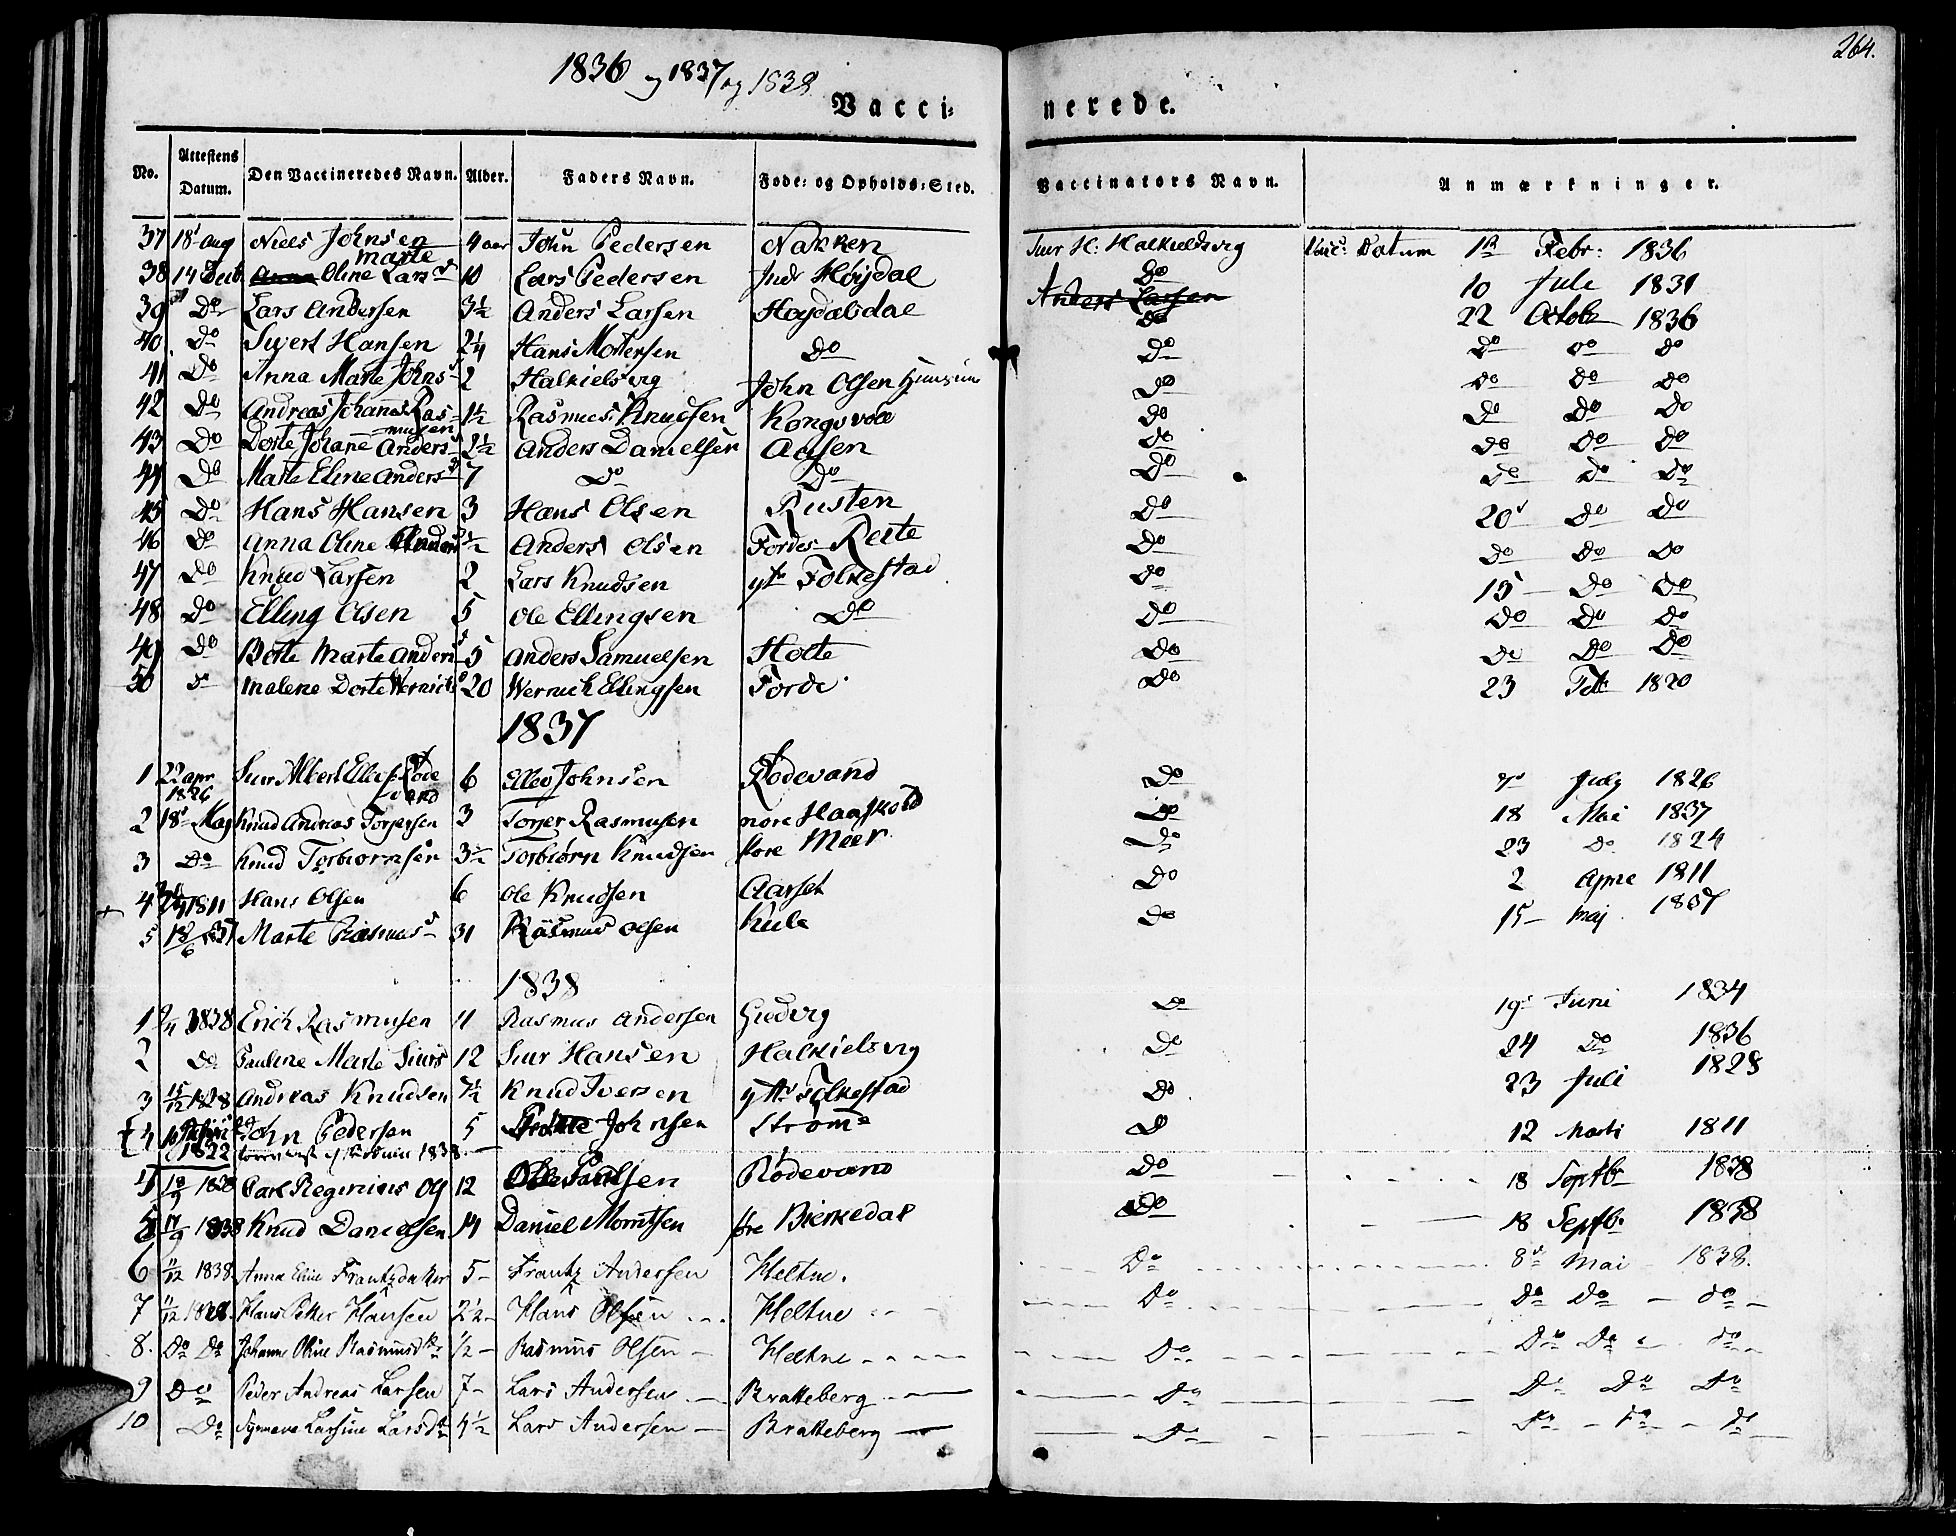 264.
1836 og 1837 og 1838
Vacci= nerede.
No. | Attestens Datum. | Den Vaccineredes Navn. | Alder. | Faders Navn. | Føde= og Opholds=Sted. | Vaccinators Navn. | Anmærkninger.
37 | 18 Aug | Niels Johnsen | 4 aar | John Pedersen | Nakken | Siur H: Halkieldsvig | Datum 1 Febr: 1836
Marte
38 | 14 Decb | Anna Oline Lars | 10 | Lars Pedersen | Indr Høydal | Do | 10 Jule 1831
39 | Do | Lars Andersen | 3½ | Anders Larsen | Høydalsdal | Anders Larsen Do | 22 Octob 1836
40 | Do | Sivert Hansen | 2¼ | Hans Mortensen | Do | Do | Do Do Do
41 | Do | Anna Marte Johns | 2 | Halkielsvig | John Olsen | Do | Do Do Do
42 | Do | Andreas Johanes Ras=musen | 1½ | Rasmus Knudsen | Kongsvold | Do | Do Do Do
43 | Do | Dorte Johane Anders | 2½ | Anders Danielsen | Aasen | Do | Do Do Do
44 | Do | Marte Eline Anders | 7 | Do | Do | Do | Do Do Do
45 | Do | Hans Hansen | 3 | Hans Olsen | Rusten | Do | 20 Do Do
46 | Do | Anna Oline Anders | ½ | Anders Olsen | Fordes Reite | Do | Do Do Do
47 | Do | Knud Larsen | 2 | Lars Knudsen | ytr Folkestad | Do | 15 Do Do
48 | Do | Elling Olsen | 5 | Ole Ellingsen | Do | Do | Do Do Do
49 | Do | Berte Marte Anders | 5 | Anders Samuelsen | Holte | Do | Do Do Do
50 | Do | Malene Dorte Wernichs | 20 | Wernich Ellingsen | Forde | Do | 23 1820
1837
1 | 22 apr 1826 | Siur Albert Ellefs. Rødevand | 6 | Ellev Johnsen | Rødevand | Do | 7 July 1826
2 | 18 Maj | Knud Andreas Torgersen | 3 | Torger Rasmusen | nore Haaskold | Do | 18 Mai 1837
3 | Do | Knud Torbiørnsen | 3½ | Torbiørn Knudsen | store Meer | Do | 23 Do 1824
4 | 1811 | Hans Olsen | 6 | Ole Knudsen | Aarset | Do | 2 Apne 1811
5 | 18/6 1837 | Marte Rasmus | 31 | Rasmus Olsen | Kule | Do | 15 Maj 1837
1838
1 | 1838 | Erich Rasmusen | 11 | Rasmus Andersen | Giedvig | Do | 19 Juni 1834
2 | Do | Pauline Marte Siurs | 12 | Siur Hansen | Halkielsvig | Do | 24 Do 1836
3 | 15/12 1828 | Andreas Knudsen | 7½ | Knud Iversen | ytr Folkestad | Do | 23 Juli 1828
4 | 1822 | John Pedersen | 5 | Johnsen | Strøm | D | 12 Marts 1811
4 | 10/9 1838 | Carl Reginius | 12 | Ole Paulsen | Rødevand | Do | 18 Septbr 1838
5 | 17/9 1838 | Knud Danielsen | 14 | Daniel Morritsen | store Bierkedal | Do | 18 Septb. 1838
6 | 11/12 1838 | Anna Eline Frantzdatter | 5 | Frantz Andersen | Heltne. | Do | 8 Mai 1838.
7 | 11/12 1838. | Hans Petter Hansen | 2½ | Hans Olsen | Heltne | Do | Do Do do
8. | Do Do | Johanne Oline Rasmusdtr | ½ | Rasmus Olsen | Heltne | Do | Do Do do
9 | Do | Peder Andreas Larsen | 7 | Lars Andersen | Bratteberg | Do | Do Do Do
10 | Do | Larsine Larsdtr | 4½ | Lars Andersen | Bratteberg | Do | Do Do Do